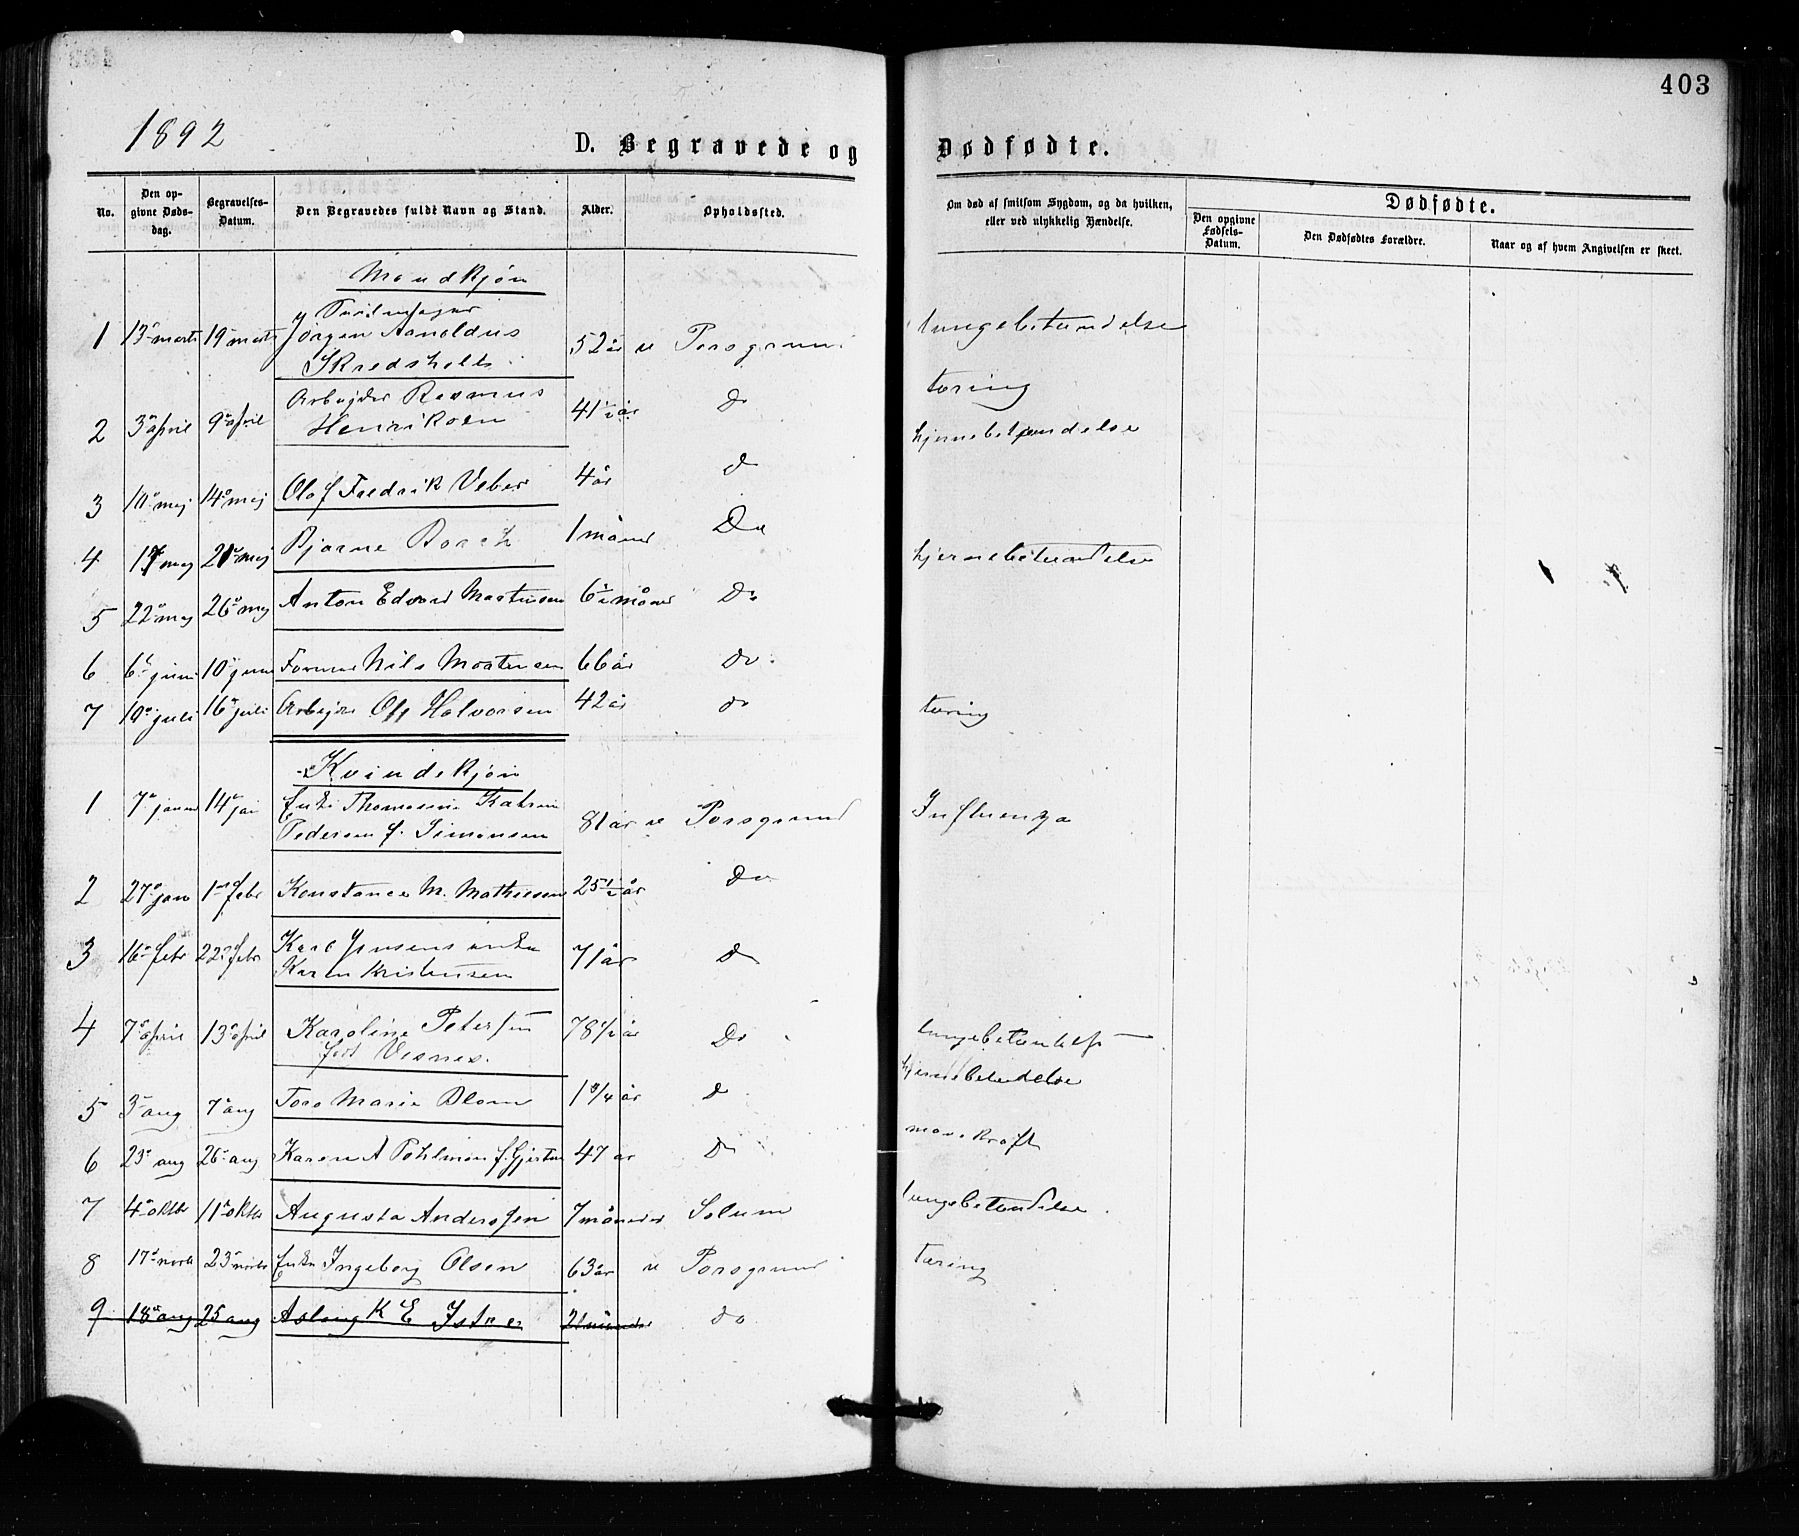 403
1892
D. Begravede og Dødfødte.
No.
Den opgivne Dødsdag.
Begravelses-Datum.
Den Begravedes fuldt Navn og Stand.
Alder.
Opholdssted.
Om død af smitsom Sygdom, og da hvilken, eller ved ulykkelig Hændelse.
Dødfødte.
Den opgivne Fødsels-Datum.
Den Dødfødtes Forældre.
Naar og af hvem Angivelsen er skeet.
Mandkjøn
1 13 marts 19 marts Jørgen Arnoldus Skredsholt 52 år Porsgrund lungebetændelse
2 3 april 9 april Arbejder Rasmus Henriksen 41 1/2 år Do tæring
3 10 mej 14 mej Olaf Fredrik Veber 4 år Do hjernebetændelse
4 17 mej 21 mej Bjarne 1 måned Do
5 22 mej 26 mej Anton Edvard Martinsen 6 1/2 måned Do hjernebetændelse
6 6 juni 10 juni Nils Mortensen 66 år Do
7 10 juli 16 juli Arbejder Halvorsen 42 år Do tæring
Kvindekjøn
1 7 januar 14 jan Enke Thomasine Katrine Pedersen f. Simonsen 81 år Porsgrund Influenza
2 27 jan 1 febr Konstance M. Mathiesen 25 1/2 år Do
3 16 febr 22 febr Karl Jensens enke Karen Kristensen 71 år Do
4 7 april 13 april Karoline Petersen født Vesnes. 78 1/2 år Do lungebetændelse
5 3 aug 7 aug Marie Blom 1 3/4 år Do hjernebetændelse
6 23 aug 26 aug Karen A Pohlman f. 47 år Do mavekræft
7 4 oktbr 11 oktbr Augusta Anderssen 7 måneder Solum lungebetændelse
8 17 novb 23 novbr Enke Ingeborg Olsen 63 år Porsgrund tæring
9 18 aug 25 aug Aslaug K E 21 måneder do